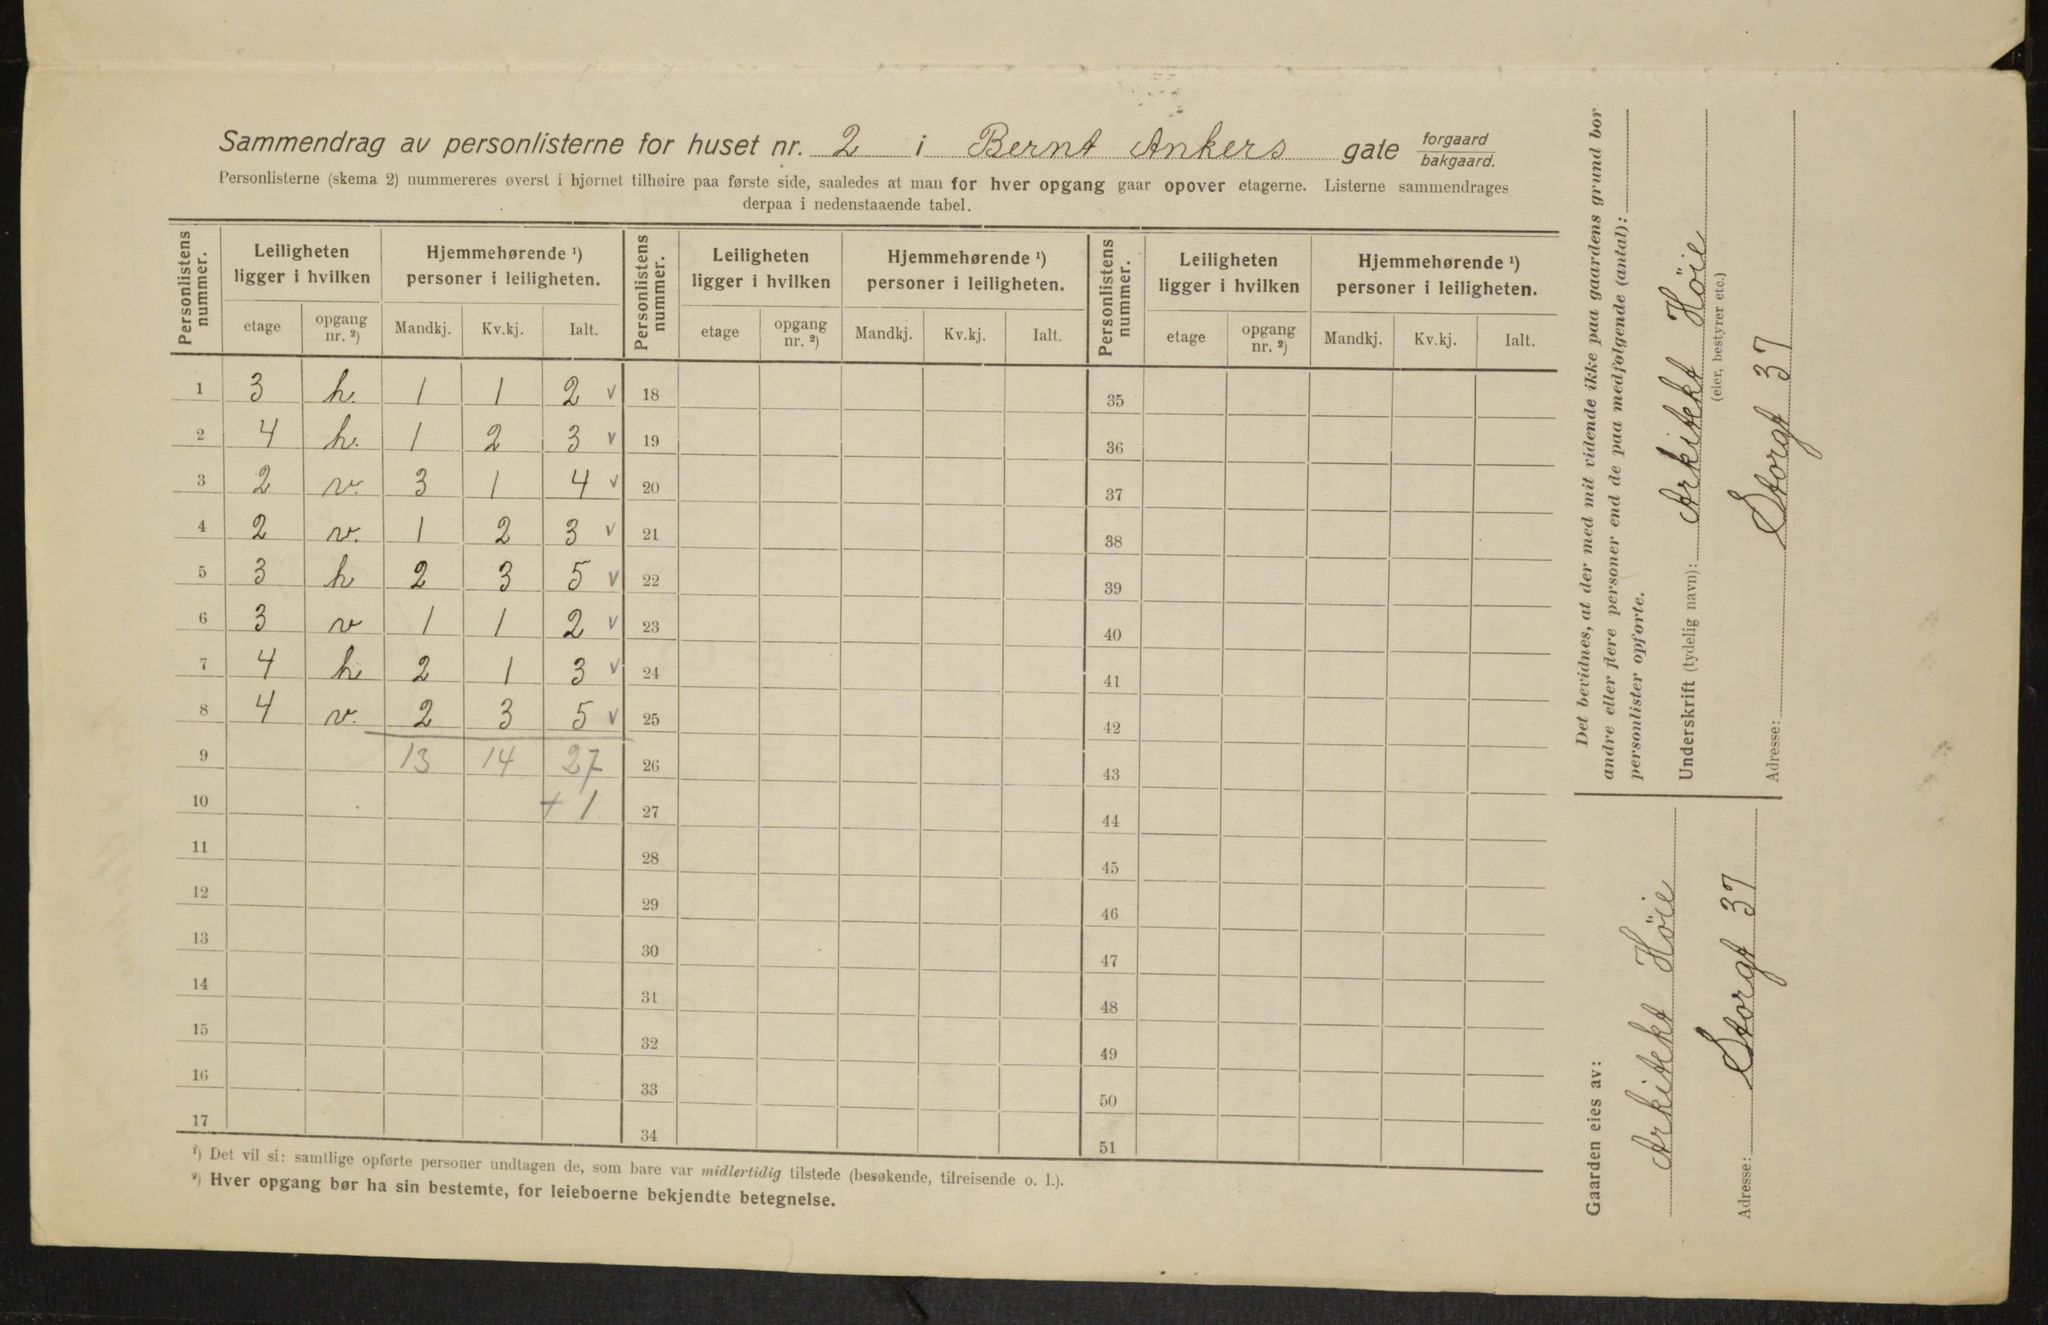 Sammendrag av personlisterne for huset nr. 2 i Bernt Ankers gate forgaard bakgaard.
Personlisterne (skema 2) nummereres øverst i hjørnet tilhøire paa første side, saaledes at man for hver opgang gaar opover etagerne. Listerne sammendrages
derpaa i nedenstaaende tabel.
Personlistens nummer. Leiligheten ligger i hvilken Hjemmehørende ¹) personer i leiligheten. Personlistens nummer. Leiligheten ligger i hvilken Hjemmehørende ¹) personer i leiligheten. Personlistens nummer. Leiligheten ligger i hvilken Hjemmehørende ¹) personer i leiligheten.
etage opgang nr. ²) Mandkj. Kv.kj. Ialt. etage opgang nr. ²) Mandkj. Kv.kj. Ialt. etage opgang nr. ²) Mandkj. Kv.kj. Ialt.
1 3 h. 1 1 2 v 18 35
2 4 h. 1 2 3 v 19 36
3 2 v. 3 1 4 v 20 37
4 2 v. 1 2 3 v 21 38
5 3 h 2 3 5 v 22 39
6 3 v 1 1 2 v 23 40
7 4 h 2 1 3 v 24 41
8 4 v. 2 3 5 v 25 42
9 13 14 27 26 43
10 + 1 27 44
11 28 45
12 29 46
13 30 47
14 31 48
15 32 49
16 33 50
17 34 51
¹) Det vil si: samtlige opførte personer undtagen de, som bare var midlertidig tilstede (besøkende, tilreisende o. l.).
²) Hver opgang bør ha sin bestemte, for leieboerne bekjendte betegnelse.
Det bevidnes, at der med mit vidende ikke paa gaardens grund bor
andre eller flere personer end de paa medfølgende (antal):
personlister opførte.
Underskrift (tydelig navn): Arkitekt Höie
(eier, bestyrer etc.)
Adresse: Storgt 37
Gaarden eies av:
Arkitekt Höie
Adresse: Storgt 37